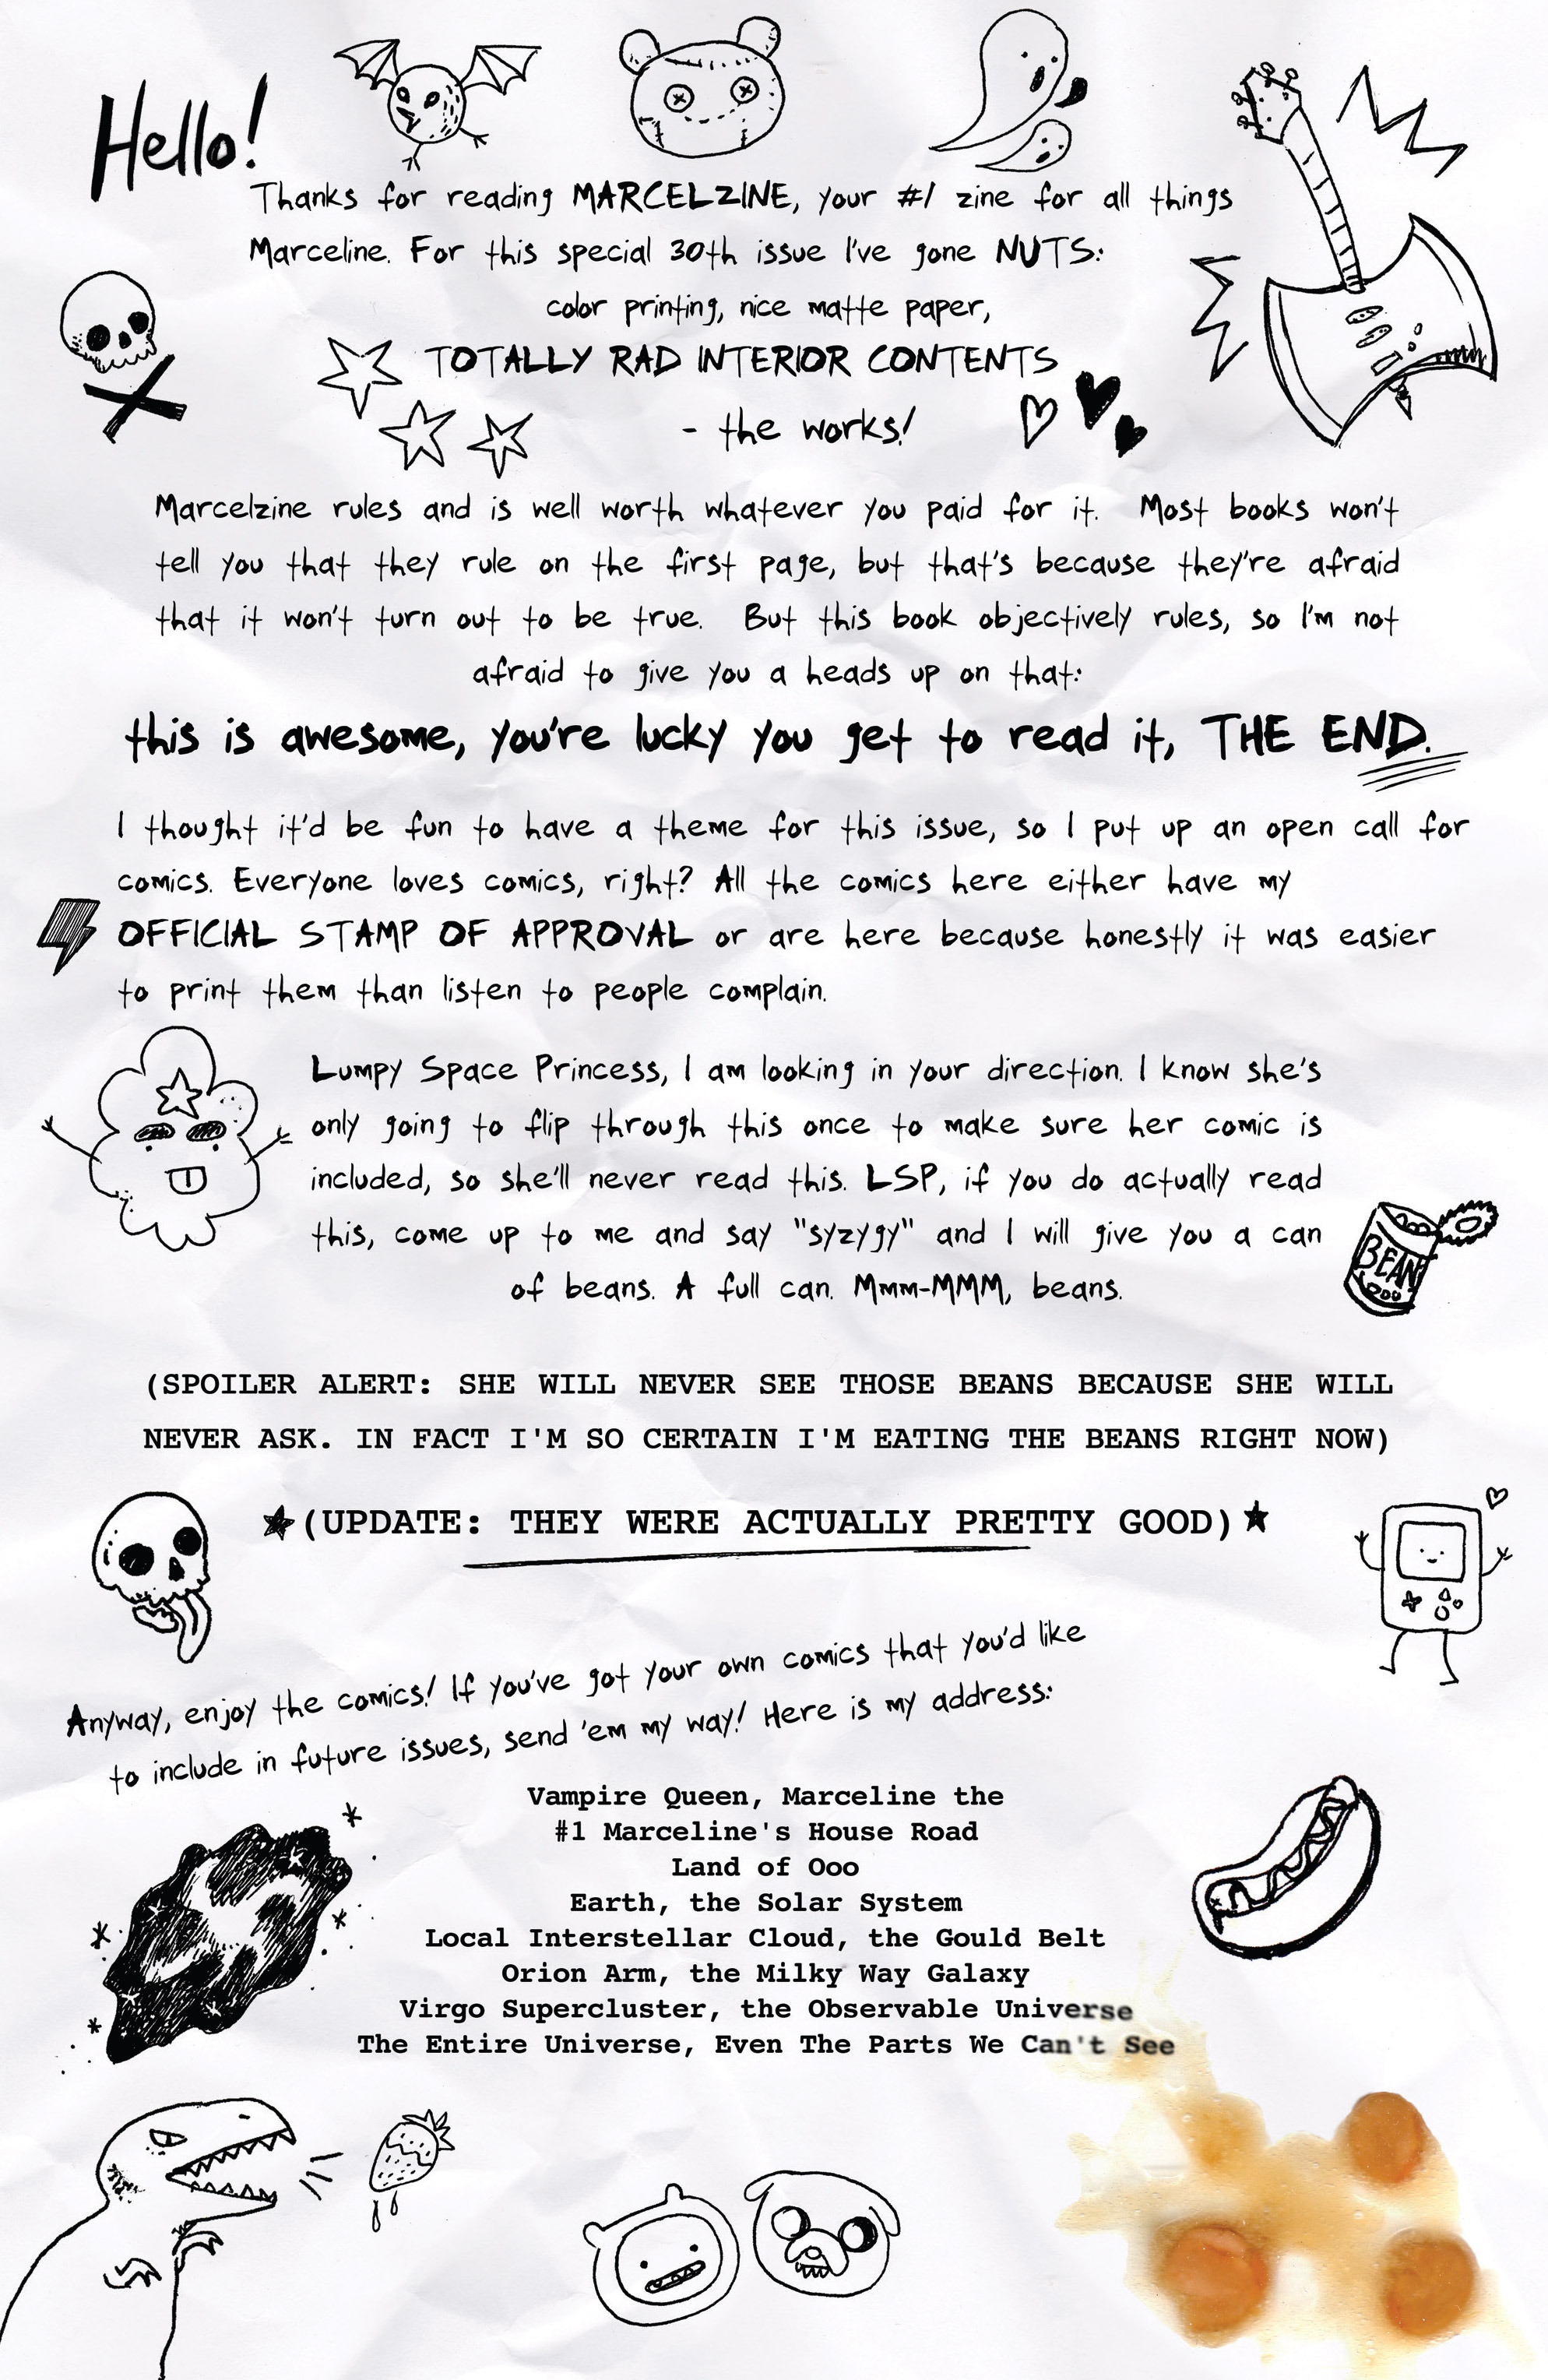 Hello!
Thanks for reading MARCELZINE, your #1 zine for all things
Marceline. For this special 30th issue I've gone NUTS:
color printing, nice matte paper,
TOTALLY RAD INTERIOR CONTENTS
- the works!
Marcelzine rules and is well worth whatever you paid for it. Most books won't
tell you that they rule on the first page, but that's because they're afraid
that it won't turn out to be true. But this book objectively rules, so I'm not
afraid to give you a heads up on that:
this is awesome, you're lucky you get to read it, THE END.
I thought it'd be fun to have a theme for this issue, so I put up an open call for
comics. Everyone loves comics, right? All the comics here either have my
OFFICIAL STAMP OF APPROVAL or are here because honestly it was easier
to print them than listen to people complain.
Lumpy Space Princess, I am looking in your direction. I know she's
only going to flip through this once to make sure her comic is
included, so she'll never read this. LSP, if you do actually read
this, come up to me and say "syzygy" and I will give you a can
of beans. A full can. Mmm-MMM, beans.
BEAN
(SPOILER ALERT: SHE WILL NEVER SEE THOSE BEANS BECAUSE SHE WILL
NEVER ASK. IN FACT I'M SO CERTAIN I'M EATING THE BEANS RIGHT NOW)
(UPDATE: THEY WERE ACTUALLY PRETTY GOOD)
Anyway, enjoy the comics! If you've got your own comics that you'd like
to include in future issues, send 'em my way! Here is my address:
Vampire Queen, Marceline the
#1 Marceline's House Road
Land of Ooo
Earth, the Solar System
Local Interstellar Cloud, the Gould Belt
Orion Arm, the Milky Way Galaxy
Virgo Supercluster, the Observable Universe
The Entire Universe, Even The Parts We Can't See